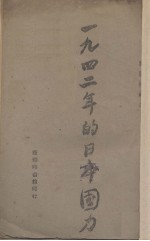 一九四二年的日本國力